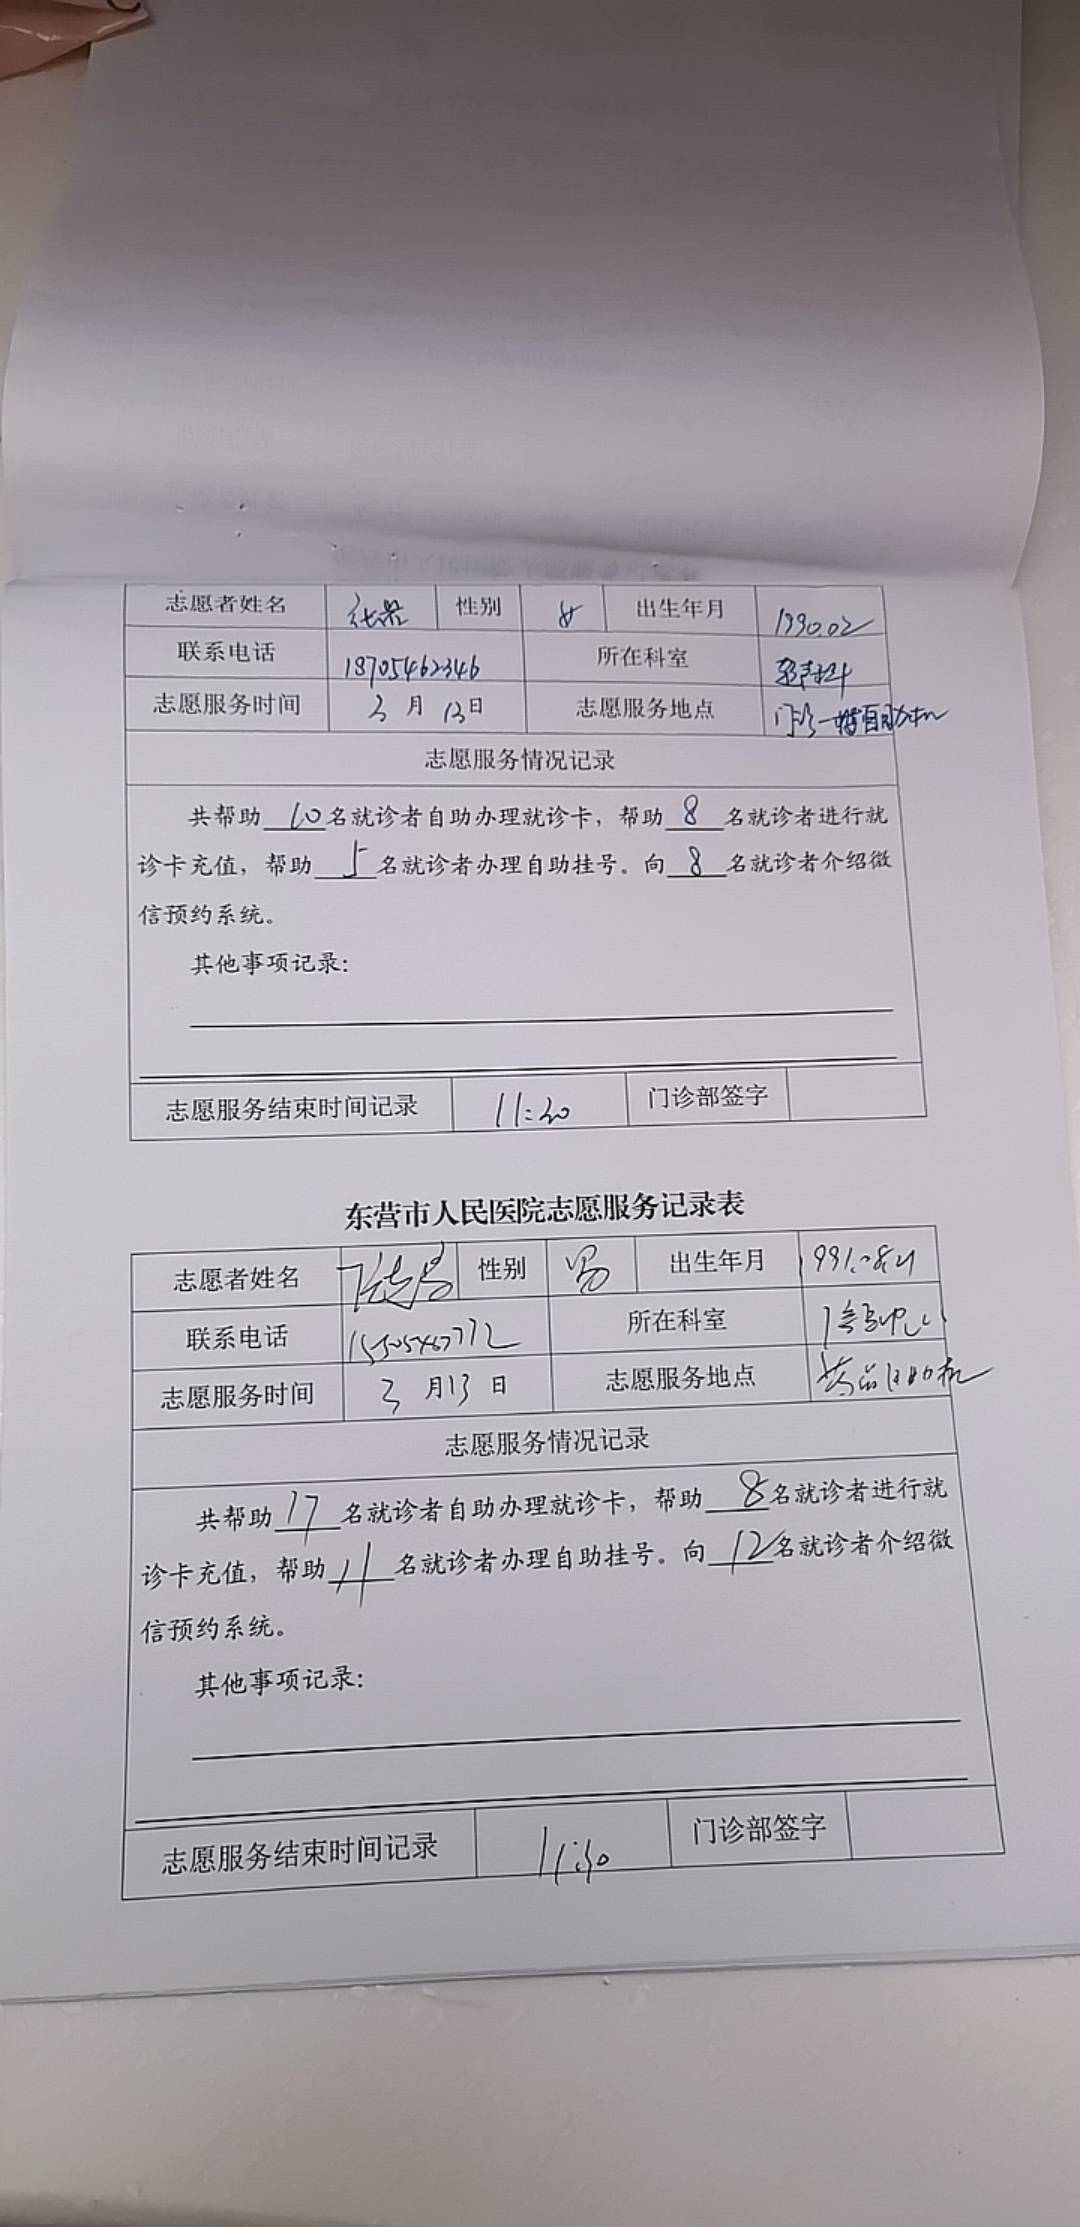 志愿者姓名 性别 女 出生年月 1990.02
联系电话 18705462346 所在科室
志愿服务时间 3月13日 志愿服务地点 门诊一楼自助机
志愿服务情况记录
共帮助10名就诊者自助办理就诊卡，帮助8名就诊者进行就
诊卡充值，帮助5名就诊者办理自助挂号。向8名就诊者介绍微
信预约系统。
其他事项记录：
志愿服务结束时间记录 11:30 门诊部签字
东营市人民医院志愿服务记录表
志愿者姓名 性别 男 出生年月
联系电话 所在科室
志愿服务时间 3月13日 志愿服务地点
志愿服务情况记录
共帮助17名就诊者自助办理就诊卡，帮助8名就诊者进行就
诊卡充值，帮助11名就诊者办理自助挂号。向12名就诊者介绍微
信预约系统。
其他事项记录：
志愿服务结束时间记录 11:30 门诊部签字